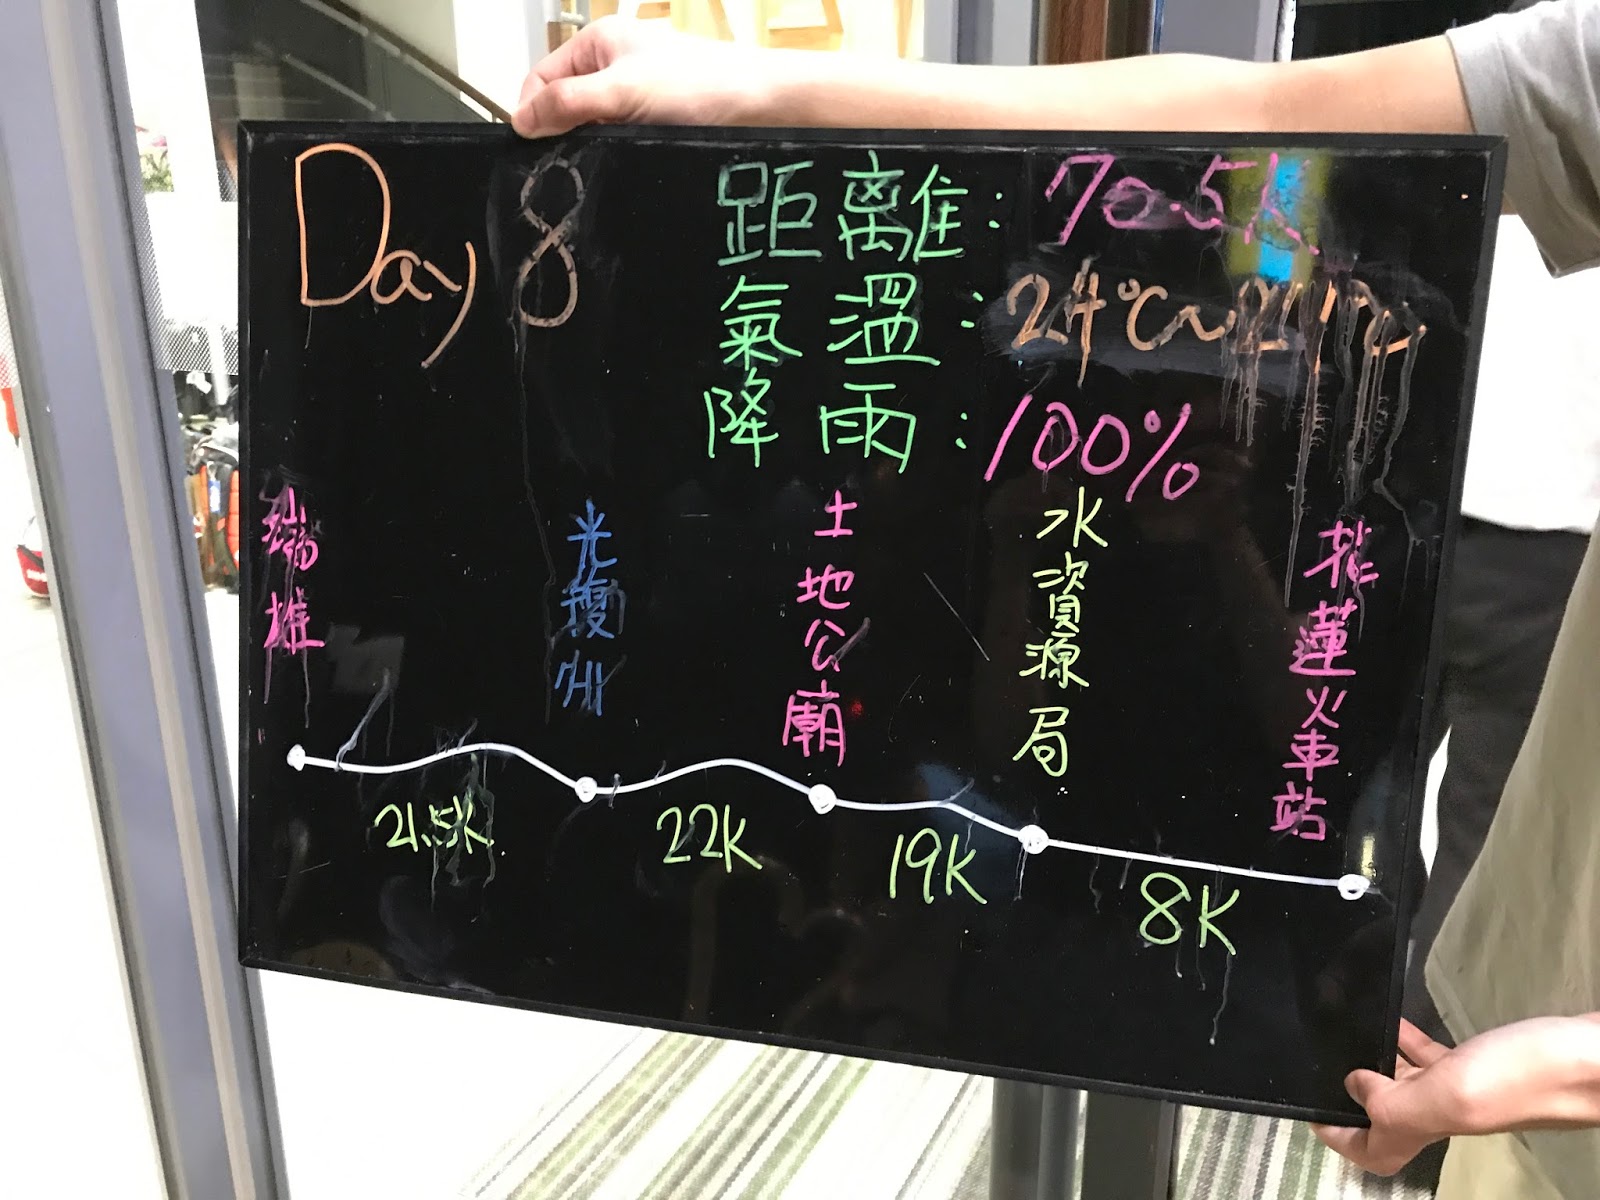 Day 8
距離:70.5K
氣溫:24°C~
降雨:100%
光復
土地公廟
水資源局
花蓮火車站
21.5K
22K
19K
8K